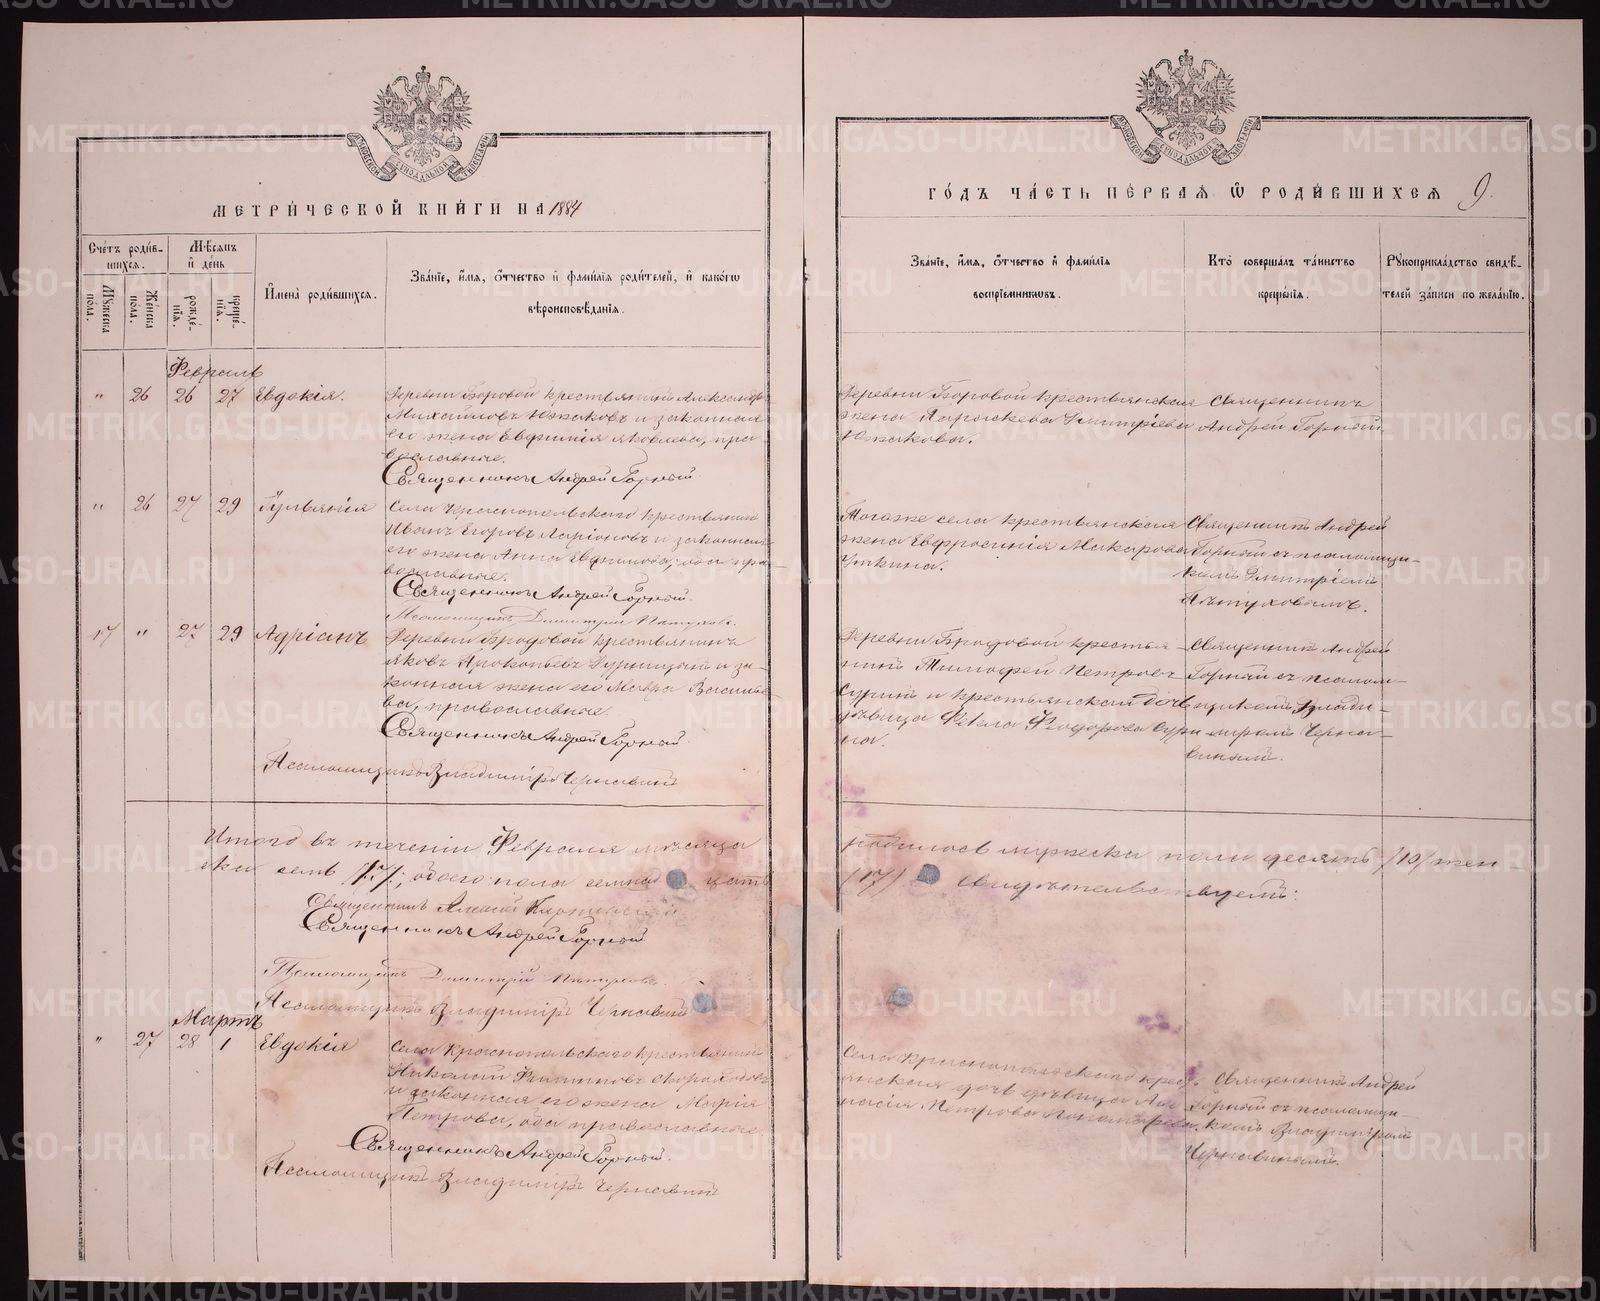 МЕТРИ́ЧЕСКОЙ КНИ́ГИ НА 1884
Сче́тъ роди́в-
шихся.
Мѣ́сяцъ
и҆ де́нь
Му́жеска
по́ла.
Же́нска
пола.
рожде́-
нїѧ.
креще́-
нїѧ.
И҆мена̀ роди́вшихся.
Зва́нїе, и҆́мя, ѻ҆́тчество и҆ фами́лїя роди́телей, и҆ како́гѡ
вѣроисповѣ́данїя.
Февраль
" 26 26 27 Евдокія.
Деревни Боровой крестьянинъ Александръ
Михайловъ Южаковъ и законная
его жена Евфимія Яковлева, пра-
вославные.
Священникъ Андрей Горный
" 26 27 29
Села Краснопольскаго крестьянинъ
Иванъ Егоровъ Ларіоновъ и законная
его жена Анна Евфимова, оба пра-
вославные.
Священникъ Андрей Горный.
Псаломщикъ Димитрій Пѣтуховъ.
17 " 27 29 Адріанъ
Деревни Бродовой крестьянинъ
Яковъ Прокопьевъ и за-
конная жена его Мавра Василье-
ва, православные.
Священникъ Андрей Горный.
Псаломщикъ Владиміръ Чернавинъ
Итого въ теченіи Февраля мѣсяца
ска семь /17/; обоего пола семнад цать
Священникъ Алексій
Священникъ Андрей Горный
Псаломщикъ Димитрій Пѣтуховъ.
Псаломщикъ Владиміръ Чернавинъ
Мартъ
" 27 28 1 Евдокія
Села Краснопольскаго крестьянинъ
Николай Филипповъ
и законная его жена Марія
Петрова, оба православные
Священникъ Андрей Горный.
Псаломщикъ Владиміръ Чернавинъ
ГО́ДЪ ЧА́СТЬ ПЕ́РВАЯ Ѽ РОДИ́ВШИХСЯ 9.
Зва́нїе, и҆́мя, ѻ҆́тчество и҆ фами́лїя
воспрїе́мниковъ.
Кто̀ соверша́лъ та́инство
креще́нїя.
Рꙋкоприкла́дство свидѣ́-
телей за́писи по жела́нїю.
Деревни Боровой крестьянская
жена Параскева Димитріева
Южакова.
Священникъ
Андрей Горный.
Тогоже села крестьянская
жена Евфросинія Макарова
Уткина.
Священникъ Андрей
Горный съ псаломщи-
комъ Димитріемъ
Пѣтуховымъ.
Деревни Бродовой крестья-
нинъ Тимофей Петровъ
Суринъ и крестьянская дочь
дѣвица Фекла Феодорова Сури-
на.
Священникъ Андрей
Горный съ псалом-
щикомъ Влади-
міромъ Черна-
винымъ.
родилось мужеска пола десять /10/ жен-
(17) Свидѣтельствуемъ:
Села Краснопольскаго кресть-
янская дочь дѣвица
Петрова
Священникъ Андрей
Горный съ псаломщи-
комъ Владиміромъ
Чернавинымъ.
METRIKI.GASO-URAL.RU